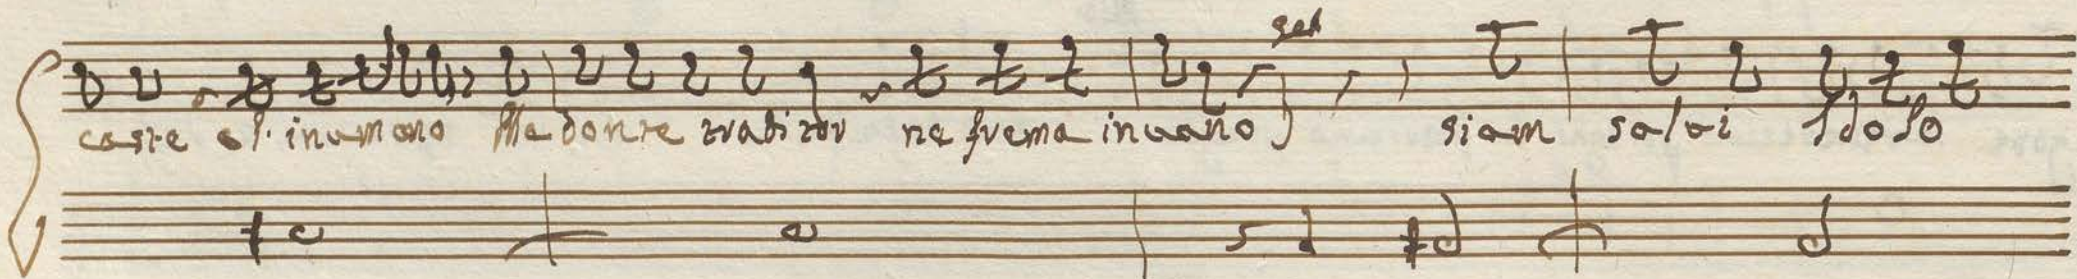 sel
caste e l'inumano Medonte traditor ne frema inuano) siam salui Idolo